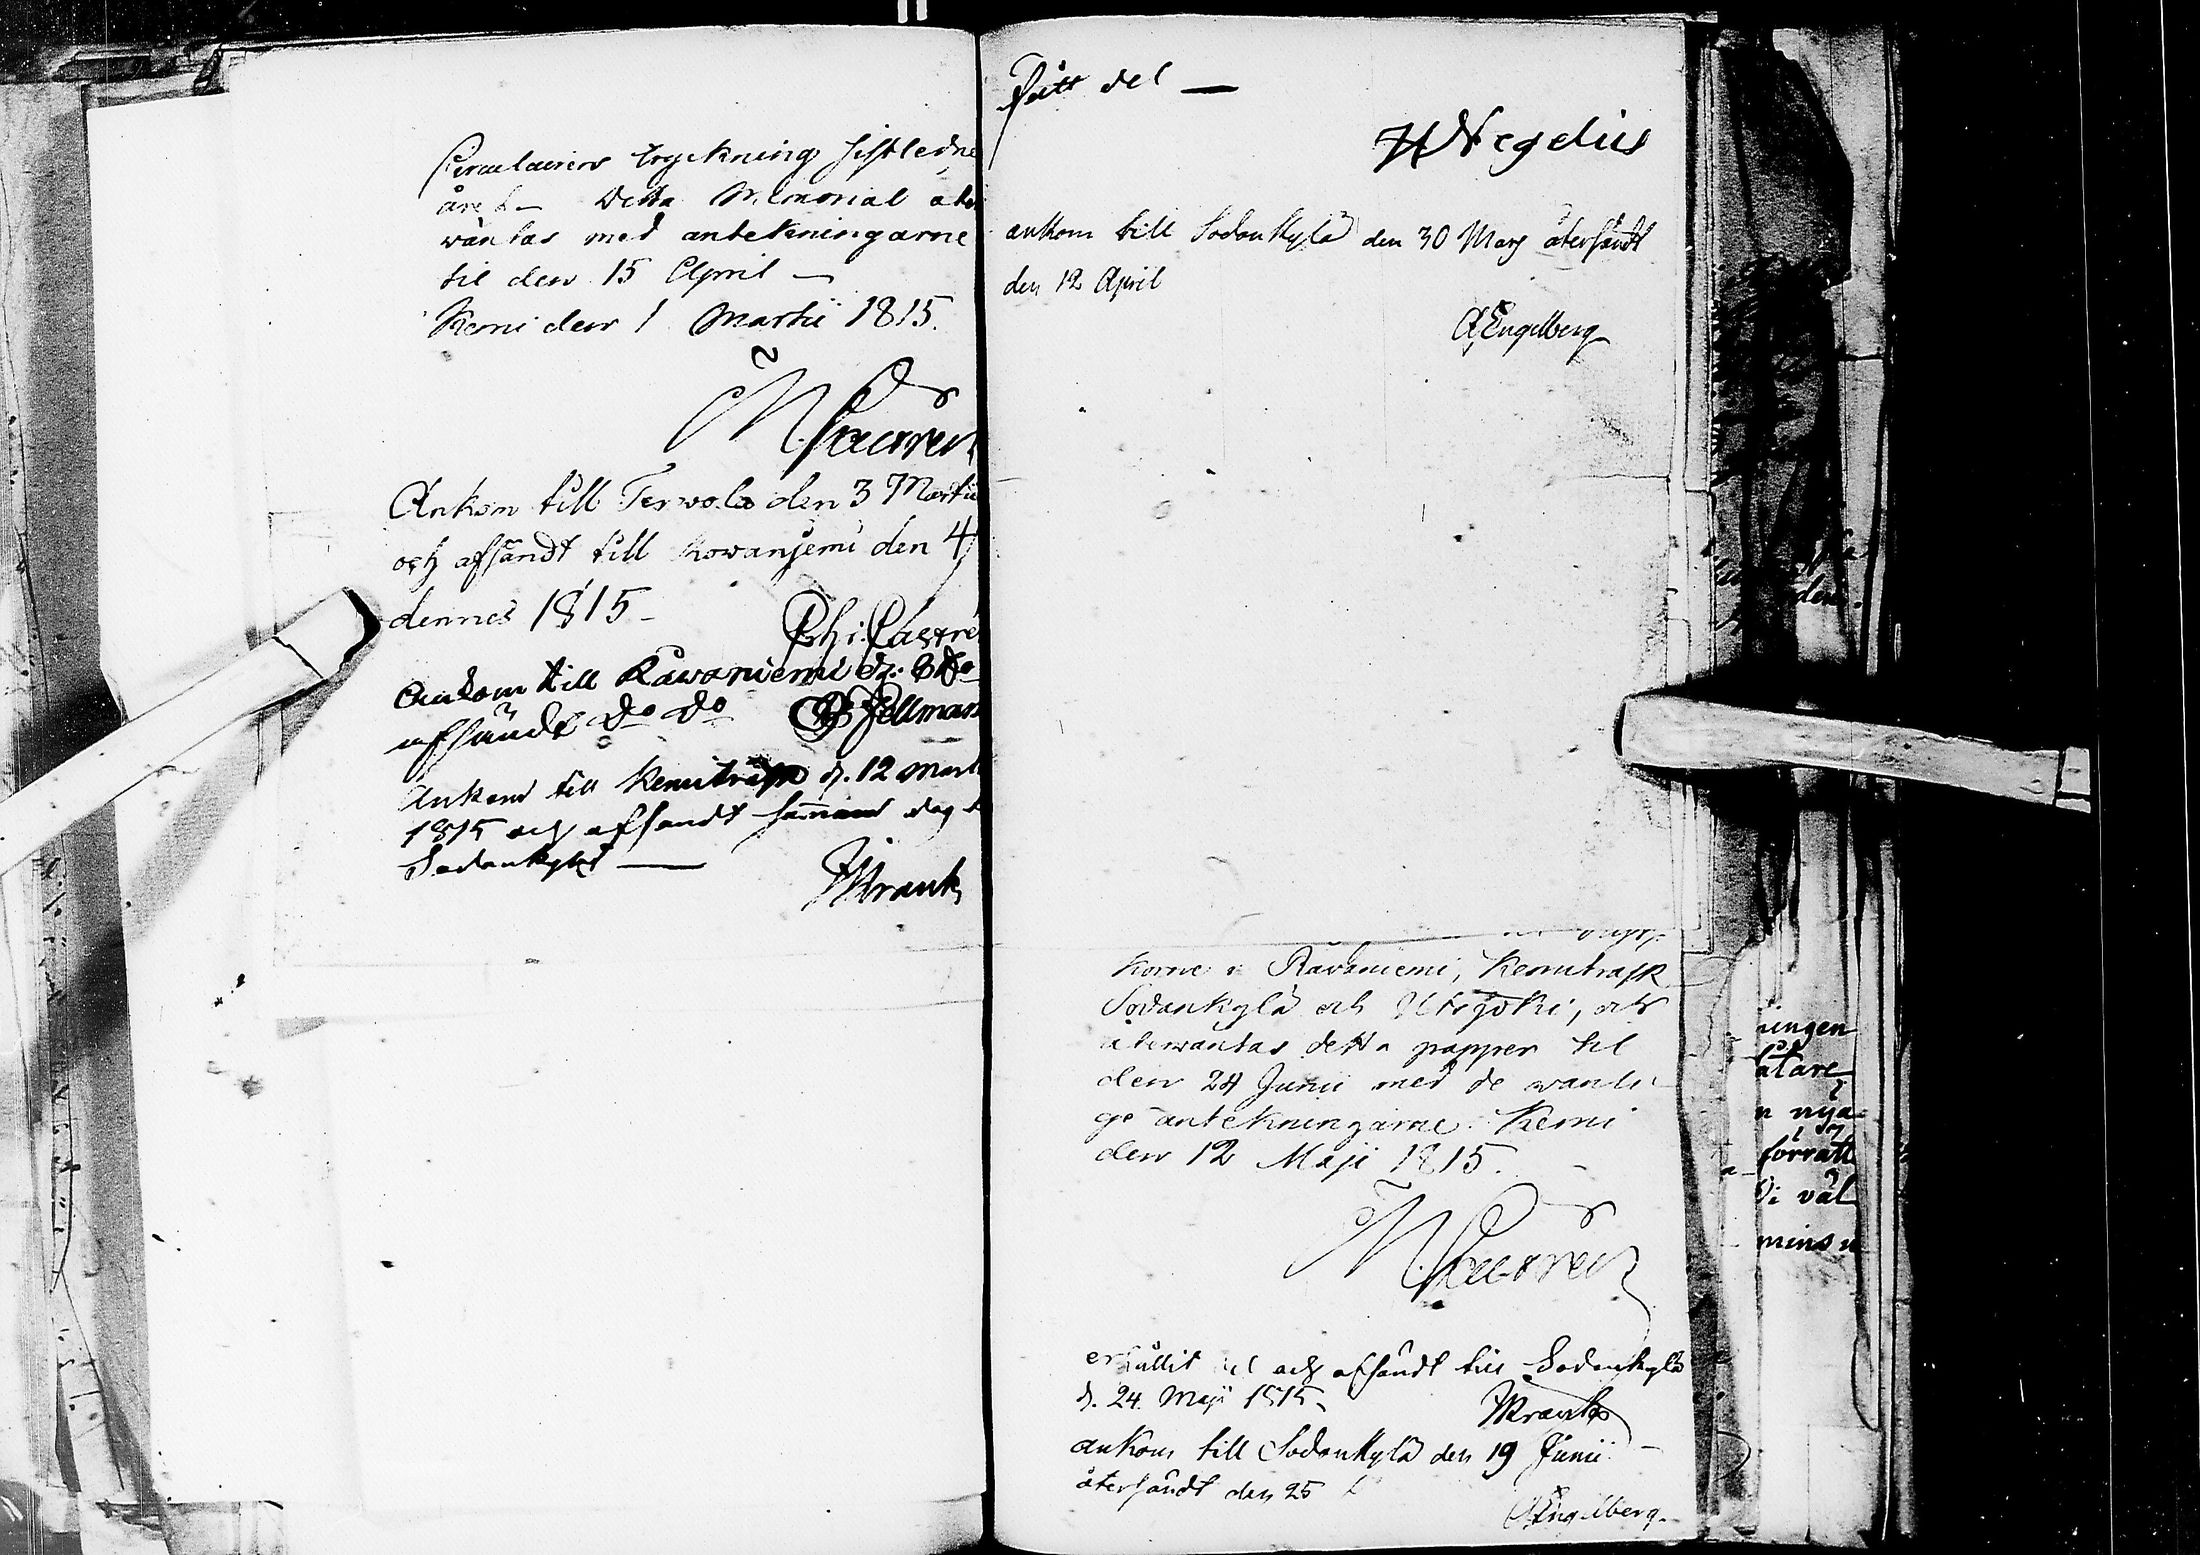 Circulairens tryckning sistledne
året – Detta Memorial åter
wäntas med antekningarne
til den 15 April –
Kemi den 1 Martii 1815.
M. Castren
Ankom till Terwola den 3 Martii
och afsändt till Rowanjemi den 4
dennes 1815 –
Ph: Castré
Ankom till Råwaniemi d. 6 do
afsändt do do Fellman
Ankom till Kemiträsk d. 12 Mart
1815 och afsändt samma dag
Sodankylä —
Krank
fått del —
H Wegelius
ankom till Sodankylä den 30 Mars återsändt
den 12 April
A Engelberg
korne i Råvaniemi, Kemitrask
Sodankylä och Utsjoki, och
återwäntas detta papper til
den 24 Junii med de wanli
ge antekningarne. Kemi
den 12 Maji 1815.
M. Castren
erhållit del och afsändt till Sodankylä
d. 24 Maji 1815.
Krank
ankom till Sodankylä den 19 Junii
återsändt den 25
A Engelberg
den.
ningen
åtare
n nya
förrätt
Di väl
mins